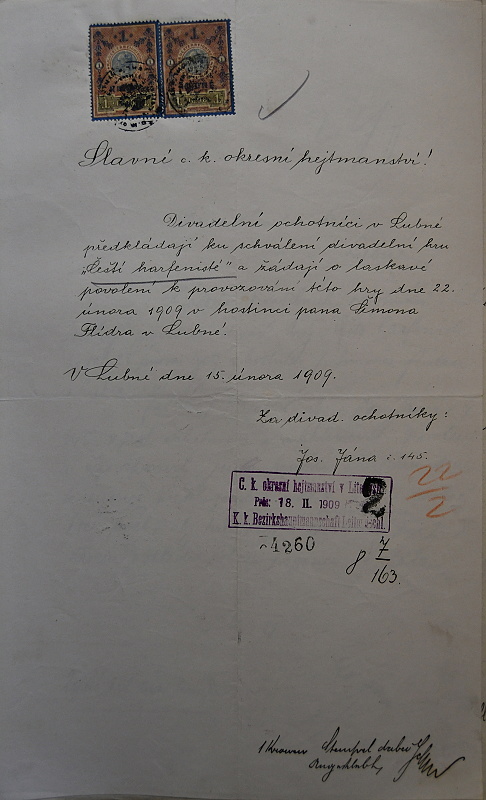 1 1
Slavné c. k. okresní hejtmanství!
Divadelní ochotníci v Lubné
předkládají ku schválení divadelní hru
„Čeští harfenisté" a žádají o laskavé
povolení k provozování této hry dne 22.
února 1909 v hostinci pana Šimona
Flídra v Lubné.
V Lubné dne 15. února 1909.
Za divad. ochotníky:
Jos. Jána č. 145.
22
2
C. k. okresní hejtmanství v
Präs: 18. II. 1909
K. k. Bezirkshauptmannschaft
4260
8 7
163.
1 Kronen Stempel dabei